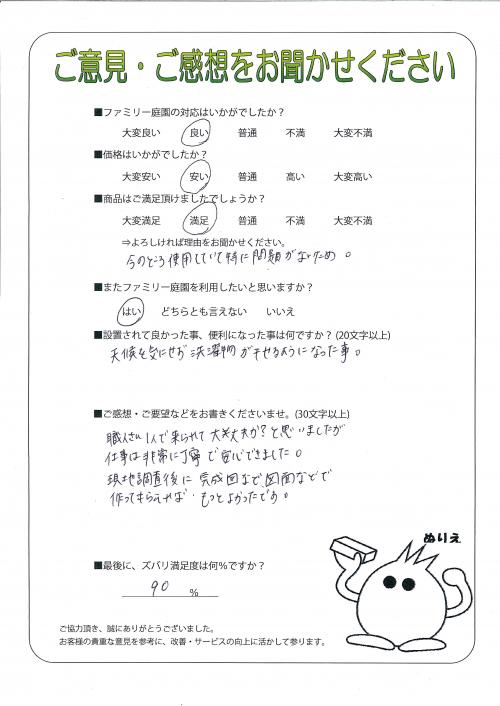 ご意見・ご感想をお聞かせください
■ファミリー庭園の対応はいかがでしたか？
大変良い 良い 普通 不満 大変不満
■価格はいかがでしたか？
大変安い 安い 普通 高い 大変高い
■商品はご満足頂けましたでしょうか？
大変満足 満足 普通 不満 大変不満
⇒よろしければ理由をお聞かせください。
今のところ使用していて特に問題がないため。
■またファミリー庭園を利用したいと思いますか？
はい どちらとも言えない いいえ
■設置されて良かった事、便利になった事は何ですか？(20文字以上)
天候を気にせず洗濯物が干せるようになった事。
■ご感想・ご要望などをお書きくださいませ。(30文字以上)
職人さん1人で来られて大丈夫か？と思いましたが
仕事は非常に丁寧で安心できました。
現地調査後に完成図など図面などで
作ってもらえれば もっとよかったです。
ぬりえ
■最後に、ズバリ満足度は何％ですか？
90 ％
ご協力頂き、誠にありがとうございました。
お客様の貴重な意見を参考に、改善・サービスの向上に活かして参ります。